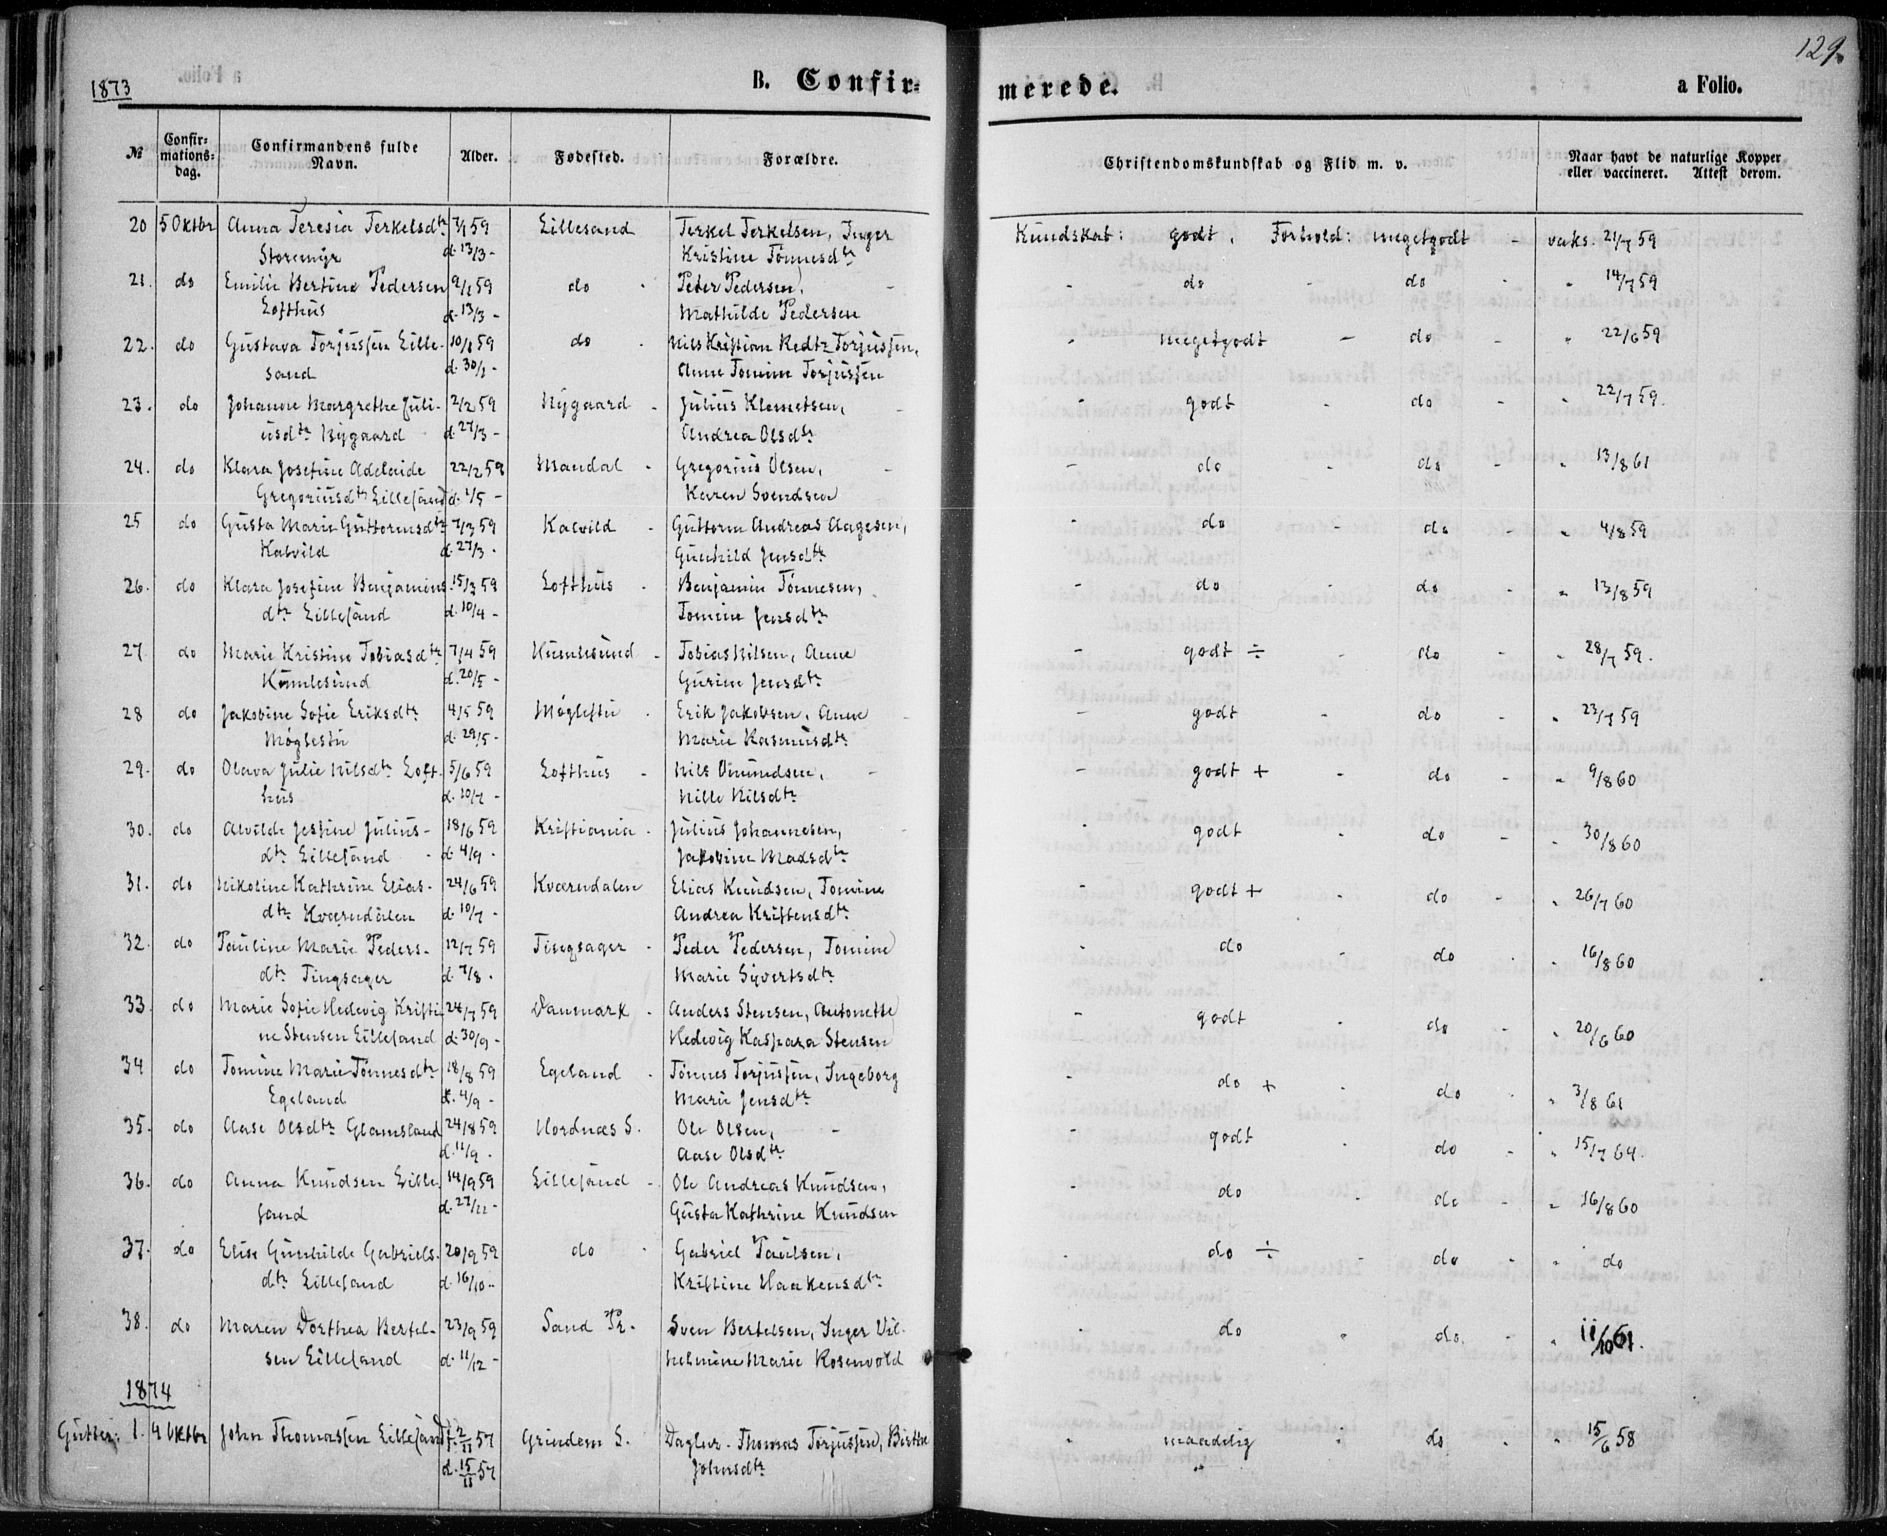 129.
1873
B. Confir-
merede.
a Folio.
№ Confirmations-dag. Confirmandens fulde Navn. Alder. Fødested. Forældre. Christendomskundskab og Flid m. v. Naar havt de naturlige Kopper eller vaccineret. Attest derom.
20 5 Oktbr Anna Teresia Terkelsdtr 7/1 59 Lillesand Terkel Terkelsen, Inger Kundskab: godt, Forhold: megetgodt vaks. 21/7 59
Storemyr d. 13/3 - Kristine Tønnesdtr
21. do Emilie Bertine Pedersen 9/1 59 do - Peder Pedersen, - do - do - " 14/7 59
Lofthus d. 13/3 - Mathilde Pedersen
22. do Gustava Torjussen Lille- 10/1 59 do - Nils Kristian Redtz Torjussen, - megetgodt - do - " 22/6 59
sand d. 30/1 - Anne Tomine Torjussen
23. do Johanne Margrethe Juli- 2/2 59 Nygaard - Julius Klemetsen, - godt - do - " 22/7 59.
usdtr Nygaard d. 27/3 - Andrea Olsdtr
24. do Klara Josefine Adelaide 22/2 59 Mandal - Gregorius Olsen, - do - do - " 13/8 61
Gregoriusdtr Lillesand d. 1/5 - Karen Svendsen
25 do Gusta Marie Guttormsdtr 7/3 59 Kalvild - Guttorm Andreas Aagesen, - do - do - " 4/8 59
Kalvild d. 27/3 - Gunhild Jensdtr
26. do Klara Josefine Benjamins 15/3 59 Lofthus - Benjamin Tønnesen, - do - do - " 13/8 59
dtr Lillesand d. 10/4 - Tomine Jensdtr
27. do Marie Kristine Tobiasdtr 7/4 59 Humlesund - Tobias Nilsen, Anne - godt ÷ do - " 28/7 59.
Humlesund d. 20/5 - Gurine Jensdtr
28 do Jakobine Sofie Eriksdtr 4/5 59 Møglestu - Erik Jakobsen, Anne - godt - do - " 23/7 59
Møglestu d. 29/5 - Marie Rasmusdtr
29. do Olava Julie Nilsdtr Loft- 5/6 59 Lofthus - Nils Omundsen, - godt + - do - " 9/8 60
hus d. 10/7 - Nille Nilsdtr
30. do Alvilde Jestine Julius- 18/6 59 Kristiania - Julius Johannesen, godt - do - " 30/8 60
dtr Lillesand d. 4/9 - Jakobine Madsdtr
31. do Nikoline Kathrine Elias- 24/6 59 Kværndalen Elias Knudsen, Tomine - godt + - do - " 26/7 60
dtr Kværndalen d. 10/7 - Andrea Kristensdtr
32. do Pauline Marie Peders- 12/7 59 Tingsager - Peder Pedersen, Tomine - do - do - " 16/8 60
dtr Tingsager d. 7/8 - Marie Syvertsdtr
33. do Marie Sofie Hedevig Kristi 24/7 59 Danmark - Anders Stensen, Antonette - godt - do - " 20/6 60
ne Stensen Lillesand d. 30/9 - Hedevig Kaspara Stensen
34 do Tomine Marie Tønnesdtr 18/8 59 Egeland - Tønnes Torjussen, Ingeborg - do + - do - " 3/8 61
Egeland d. 4/9 - Marie Jensdtr
35. do Aase Olsdtr Glamsland 24/8 59 Hordnæs S. Ole Olsen, - godt - do - " 15/7 64.
d. 11/9 - Aase Olsdtr
36. do Anna Knudsen Lille 14/9 59 Lillesand - Ole Andreas Knudsen, - do - do - " 16/8 60
sand d. 27/11 - Gusta Kathrine Knudsen
37. do Elise Gunhilde Gabriels- 20/9 59 do - Gabriel Paulsen, - do ÷ - do - " do
dtr Lillesand d. 16/10 - Kristine Haakensdtr
38. do Maren Dorthea Bertel- 23/9 59 Sand Pr. Sven Bertelsen, Inger Vil- - do " do - " 11/10 61.
sen Lillesand d. 11/12 - helmine Marie Rosenvold
1874
Gutter: 1. 4 Oktbr John Thomassen Lillesand f. 2/11 57 Grindem S. Daglnr. Thomas Torjussen, Birthe - maadelig - do - " 15/6 58
d. 15/11 57 Johnsdtr